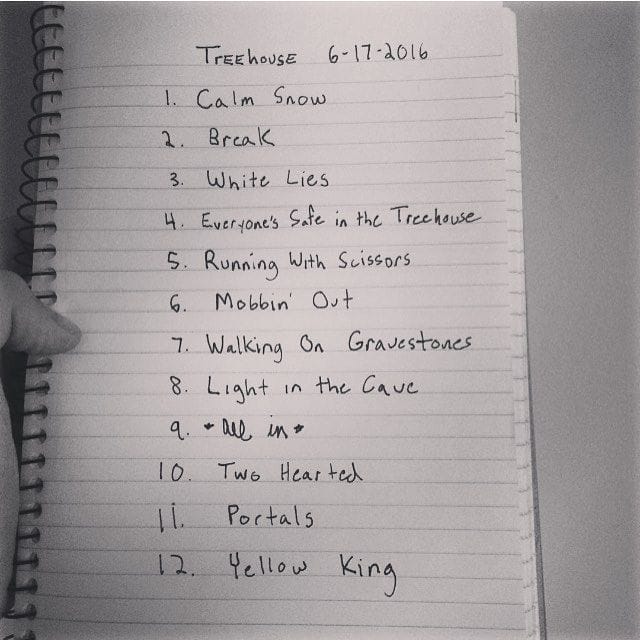 Treehouse 6-17-2016
1. Calm Snow
2. Break
3. White Lies
4. Everyone's Safe in the Treehouse
5. Running With Scissors
6. Mobbin' Out
7. Walking On Gravestones
8. Light in the Cave
9. *All in*
10. Two Hearted
11. Portals
12. Yellow King